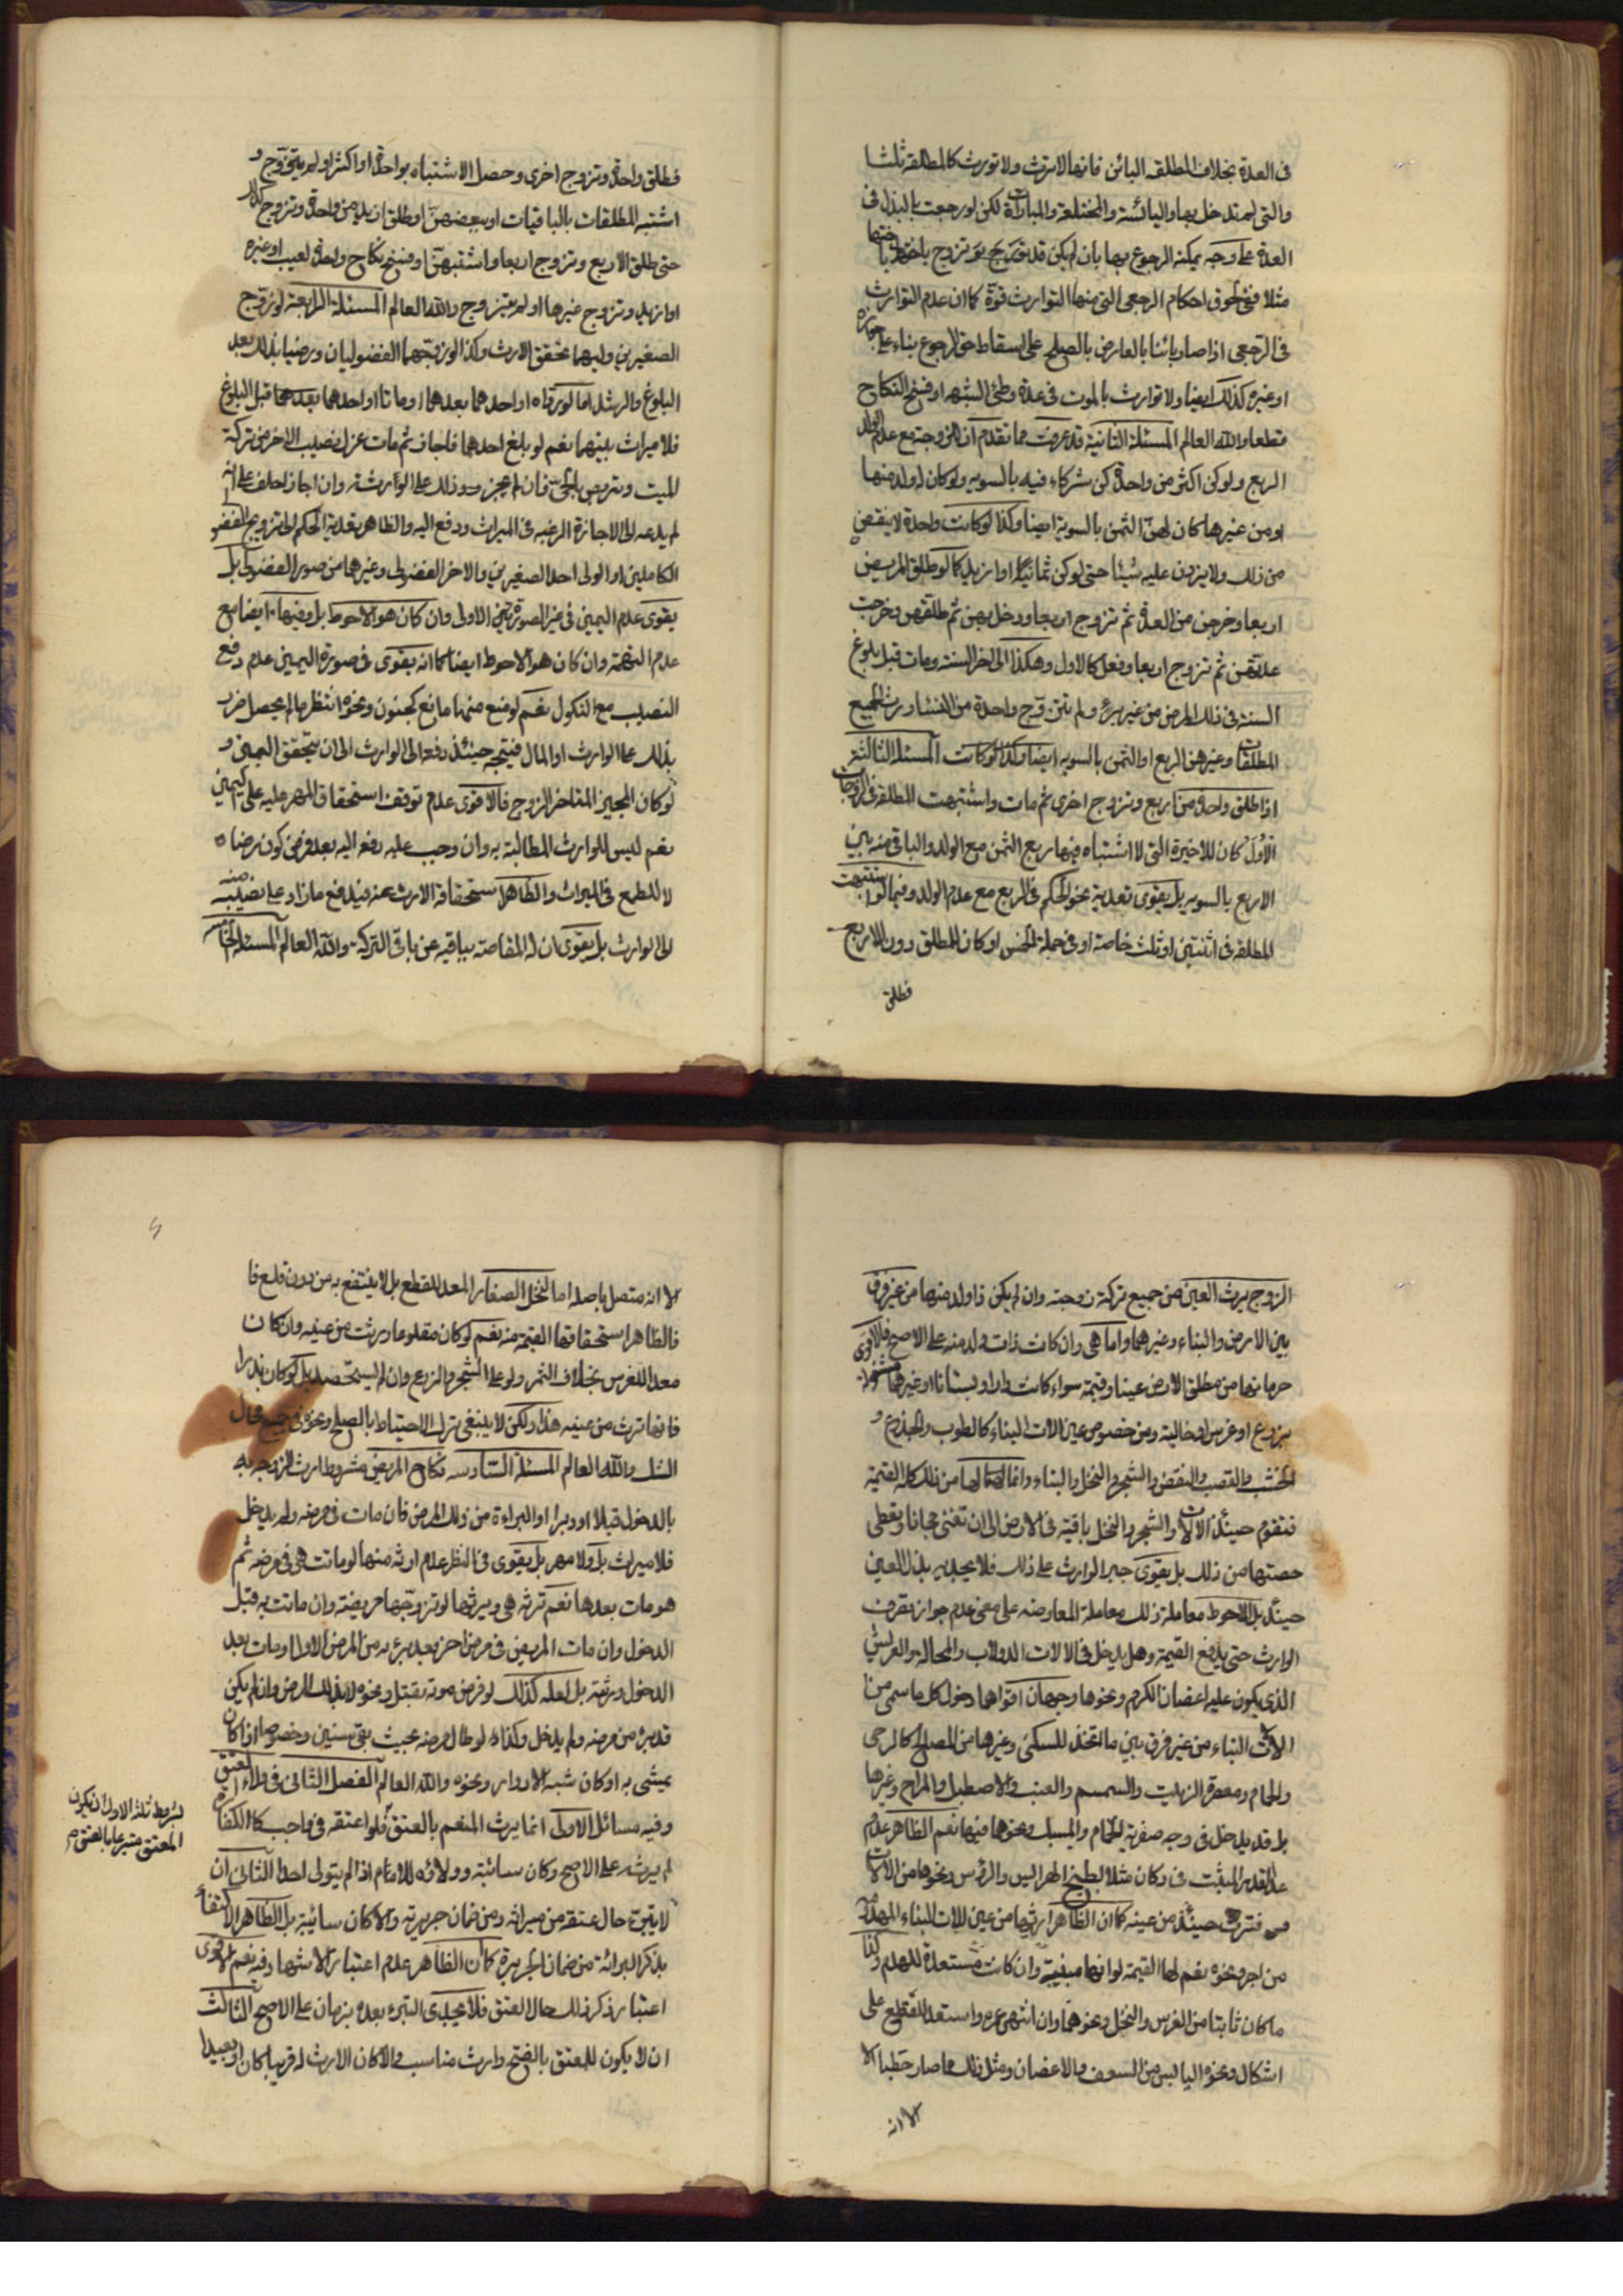 فى العدة بخلاف المطلقه البائن فانها لا ترث ولا تورث كالمطلقه ثلثا
والتى لم تدخل بها واليائسة والمختلعة والمبارات لكن لو رجعت بالبذل فى
العدة على وجه يمكنه الرجوع بها بان لم يكن قد تزوج باختها
مثلا ففى لحوق احكام الرجعى التى منها التوارث قوة كما ان عدم التوارث
فى الرجعى اذا صار بائنا بالعارض بالصلح على اسقاط حق الرجوع بناء على جوازه
او غيره كذلك ايضا ولا توارث بالموت فى عدة وطئ الشبهه او فسخ النكاح
قطعا والله العالم المسئلة الثانية قد عرفت مما تقدم ان للزوجة مع عدم الولد
الربع ولو كن اكثر من واحدة كن شركاء فيه بالسويه ولو كان له ولد منها
او من غيرها كان لهن الثمن بالسوية ايضا وكذا لو كانت واحدة لا ينقص
من ذلك ولا يزدن عليه شيئا حتى لو كن ثمانية او ازيد كما لو طلق المريض
اربعا وخرجن من العدة ثم تزوج اربعا ودخل بهن ثم طلقهن وخرجت
عدتهن ثم تزوج اربعا وفعل كالاول وهكذا الى اخر السنة ومات قبل بلوغ
السنة فى ذلك المرض من غير برء ولم تتزوج واحدة من النساء ورث الجميع
المطلقات وغيرهن الربع او الثمن بالسويه ايضا وكذا لو كانت المسئلة الثالثة
اذا طلق واحدة من اربع وتزوج اخرى ثم مات واشتبهت المطلقه فى الزوجات
الاول كان للاخيرة التى لا اشتباه فيها ربع الثمن مع الولد والباقى منه بين
الاربع بالسويه بل يقوى تعدية نحو الحكم فى الربع مع عدم الولد وفيما لو اشتبهت
المطلقه فى اثنتين او ثلث خاصة او فى جملة الخمس او كان المطلق دون الاربع
فطلق
فطلق واحدة وتزوج اخرى وحصل الاشتباه بواحدة او اكثر او لم يتزوج و
اشتبه المطلقات بالباقيات او ببعضهن او طلق ازيد من واحدة وتزوج كذلك
حتى طلق الاربع وتزوج اربعا واشتبهن او فسخ نكاح واحدة لعيب او غيره
او ازيد وتزوج غيرها او لم يتزوج والله العالم المسئلة الرابعة لو زوج
الصغيرين وليهما تحقق الارث وكذا لو زوجهما الفضوليان ورضيا بذلك بعد
البلوغ والرشد اما لو رداه او احدهما بعدهما او ماتا او احدهما بعدهما قبل البلوغ
فلا ميراث بينهما نعم لو بلغ احدهما فاجاز ثم مات عزل نصيب الاخر من تركة
الميت وتربص بالحى فان لم يجز رد ذلك على الوارث وان اجاز احلف على انه
لم يدعه الى الاجازة الرغبه فى الميراث ودفع اليه والظاهر تعدية الحكم الى تزويج الفضولى
الكاملين او الولى احد الصغيرين والاخر الفضولى وغيرهما من صور الفضولى بل
يقوى عدم اليمين فى غير الصورة الاولى وان كان هو الاحوط بل وفيها ايضا مع
عدم التهمة وان كان هو الاحوط ايضا كما انه يقوى فى صورة اليمين عدم دفع
النصيب مع النكول نعم لو منع منها مانع كجنون ونحوه انتظر ما لم يحصل ضرر
بذلك على الوارث او المال فيتجه حينئذ دفعه الى الوارث الى ان يتحقق اليمين و
لو كان المجيز المتاخر الزوج فالاقوى عدم توقف استحقاق المهر عليه على اليمين
نعم ليس للوارث المطالبة به وان وجب عليه دفعه اليه بعد فرض كون رضاه
لا للطمع فى الميراث والظاهر استحقاقه الارث منه فيدفع ما زاد على نصيبه منه
الى الوارث بل يقوى ان له المقاصة بباقيه عن باقى التركة والله العالم المسئلة الخامسة
الزوج يرث العين من جميع تركة زوجته وان لم يكن ذا ولد منها من غير فرق
بين الارض والبناء وغيرهما واما هى وان كانت ذات ولد منه على الاصح فالاقوى
حرمانها من مطلق الارض عينا وقيمة سواء كانت دارا او بستانا او غيرهما مشغولة
بزرع او غرس او خالية ومن خصوص عين الات البناء كالطوب والجذوع و
الخشب والقصب والنقض والشجر والنخل والبناء وانما لها من ذلك كله القيمة
فتقوم حينئذ الالات والشجر والنخل باقية فى الارض الى ان تفنى مجانا وتعطى
حصتها من ذلك بل يقوى جبر الوارث على ذلك فلا يجديه بذل العين
حينئذ بل الاحوط معاملة ذلك معاملة المعاوضه على معنى عدم جواز تصرف
الوارث حتى يدفع القيمة وهل يدخل فى الالات الدولاب والمحاله والعريش
الذى يكون عليه اغصان الكرم ونحوها وجهان اقواهما دخول كل ما سمى من
الات البناء من غير فرق بين ما اتخذ للسكنى وغيرها من المصالح كالرحى
والحمام ومعصرة الزيت والسمسم والعنب والاصطبل والمراح وغيرها
بل قد يدخل فى وجه صفرية الحمام والمسبك ونحوها فيها نعم الظاهر عدم
عد القدر المثبت فى دكان مثلا لطبخ الهرايس والرؤس ونحوها من الالات
فترث حينئذ من عينه كما ان الظاهر ارثها من عين الات البناء المهدومة
من اجر ونحوه نعم لها القيمة لو انها مبنية وان كانت مستعدة للهدم وكذا
ما كان ثابتا من الغرس والنخل ونحوهما وان انتهى عمره واستعد للقطع على
اشكال ونحوه اليابس من السعف والاغصان ومثل ذلك ما صار حطبا الا
الا انه
الا انه متصل باصله اما النخل الصغار المعد للقطع بل لا ينتفع به من دون قلع فا
فالظاهر استحقاقها القيمة منه نعم لو كان مقلوعا ورثت من عينه وان كان
معدا للغرس بخلاف الثمر ولو على الشجر والزرع وان لم يستحصد بل لو كان بذرا
فانها ترث من عينه هذا ولكن لا ينبغى ترك الاحتياط بالصلح ونحوه فى جميع محال
الشك والله العالم المسئلة السادسه نكاح المريض مشروط ارث الزوجه به
بالدخول قبلا او دبرا او البراءة من ذلك المرض فان مات فى مرضه ولم يدخل
فلا ميراث بل ولا مهر بل يقوى فى النظر عدم ارثه منها لو ماتت هى فى مرضه ثم
هو مات بعدها نعم ترثه هى ويرثها لو تزوجها مريضة وان ماتت به قبل
الدخول وان مات المريض فى مرض اخر بعد برءه من المرض الاول او مات بعد
الدخول ورثته بل لعله كذلك لو فرض موته بقتل ونحوه لا بذلك المرض وان لم يكن
قد برء من مرضه ولم يدخل وكذا لو طال مرضه بحيث بقى سنين وخصوصا اذا كان
يمشى به او كان شبه الادوار ونحوه والله العالم الفصل الثانى فى ولاء العتق
وفيه مسائل الاولى انما يرث المنعم بالعتق فلو اعتقه فى واجب كالكفارة
لم يرثه على الاصح وكان سائبة وولاؤه للامام اذا لم يتولى احدا الثانى ان
لا يتبرء حال عتقه من ميراثه ومن ضمان جريرته والا كان سائبة بل الظاهر الاكتفاء
بذكر البرائة من ضمان الجريرة كما ان الظاهر عدم اعتبار الاشهاد فيه نعم الاقوى
اعتبار ذكر ذلك حال العتق فلا يجدى التبرء بعده بزمان على الاصح الثالث
ان لا يكون للمعتق بالفتح وارث مناسب والا كان الارث له قريبا كان او بعيدا
بشروط ثلثه الاول ان يكون
المعتق متبرعا بالعتق